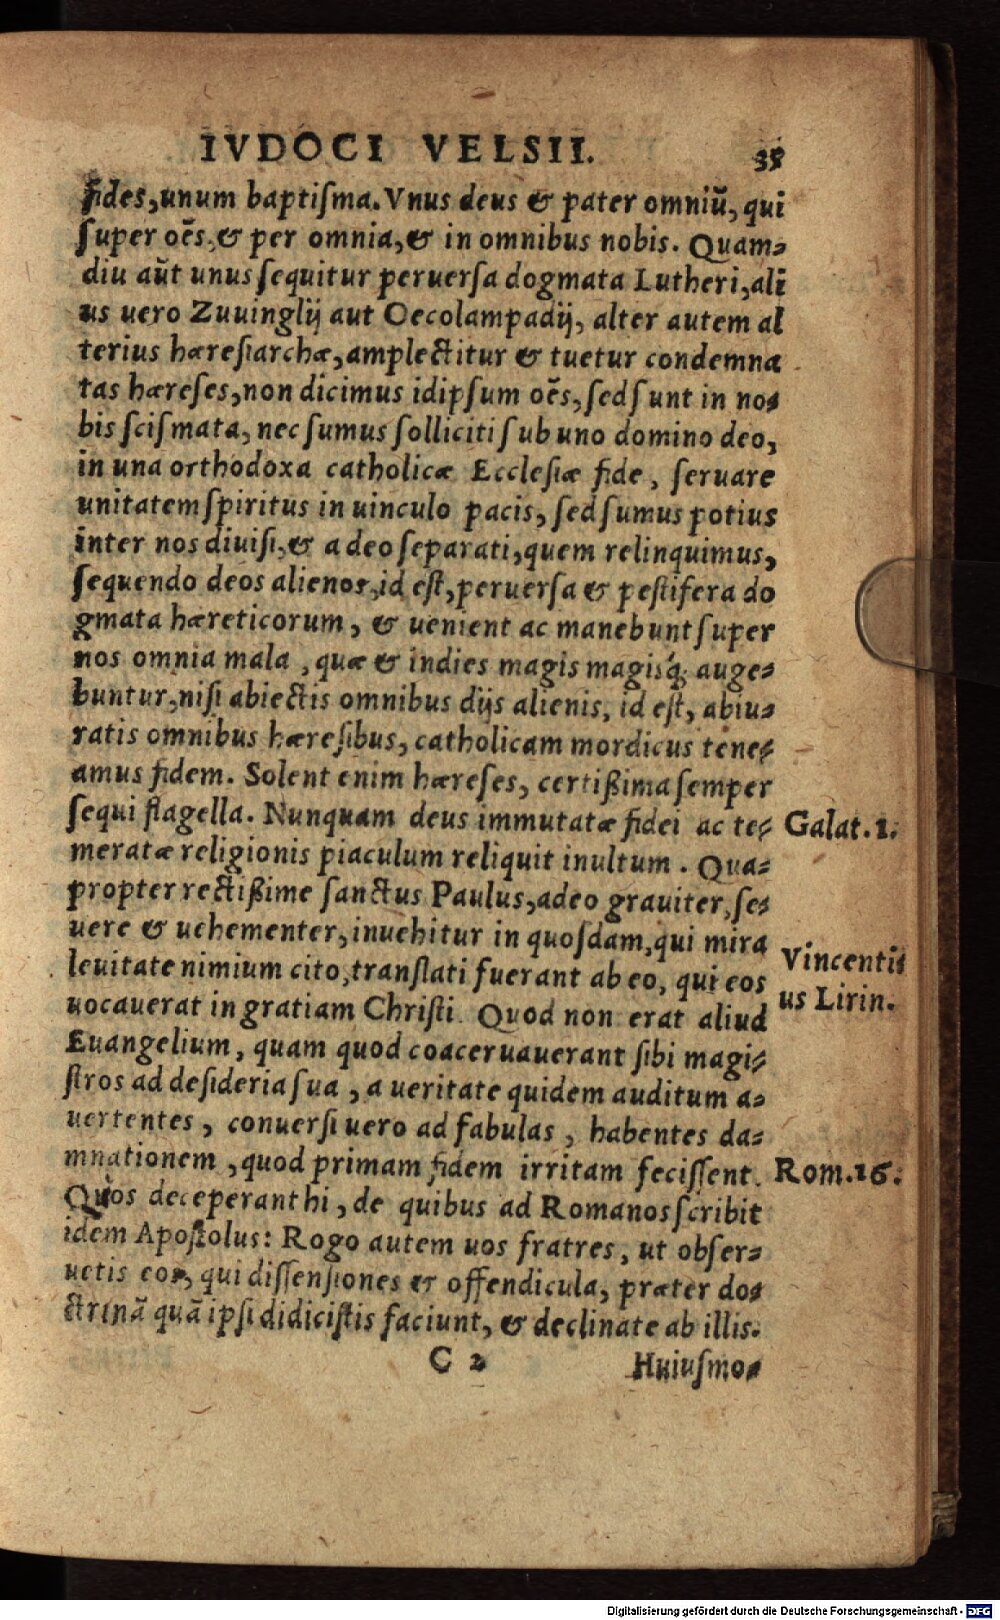 IVDOCI VELSII. 35
fides, unum baptiſma. Vnus deus & pater omniū, qui
ſuper oẽs, & per omnia, & in omnibus nobis. Quam⸗
diu aũt unus ſequitur peruerſa dogmata Lutheri, ali
us uero Zuuinglij aut Oecolampadij, alter autem al
terius hæreſiarchæ, amplectitur & tuetur condemna
tas hæreſes, non dicimus idipſum oẽs, ſed ſunt in no⸗
bis ſciſmata, nec ſumus ſolliciti ſub uno domino deo,
in una orthodoxa catholicæ Eccleſiæ fide, ſeruare
unitatem ſpiritus in uinculo pacis, ſed ſumus potius
inter nos diuiſi, & a deo ſeparati, quem relinquimus,
ſequendo deos alienos, id eſt, peruerſa & peſtifera do
gmata hæreticorum, & uenient ac manebunt ſuper
nos omnia mala, quæ & indies magis magisq́; auge⸗
buntur, niſi abiectis omnibus dijs alienis, id eſt, abiu⸗
ratis omnibus hæreſibus, catholicam mordicus tene⸗
amus fidem. Solent enim hæreſes, certißima ſemper
ſequi flagella. Nunquam deus immutatæ fidei ac te⸗
meratæ religionis piaculum reliquit inultum. Qua⸗
propter rectißime ſanctus Paulus, adeo grauiter, ſe⸗
uere & uehementer, inuehitur in quoſdam, qui mira
leuitate nimium cito, tranſlati fuerant ab eo, qui eos
uocauerat in gratiam Chriſti. Quod non erat aliud
Euangelium, quam quod coaceruauerant ſibi magi⸗
ſtros ad deſideria ſua, a ueritate quidem auditum a⸗
uertentes, conuerſi uero ad fabulas, habentes da⸗
mnationem, quod primam fidem irritam feciſſent.
Quos deceperant hi, de quibus ad Romanos ſcribit
idem Apoſtolus: Rogo autem uos fratres, ut obſer⸗
uetis eos, qui diſſenſiones & offendicula, præter do⸗
ctrinā quā ipſi didiciſtis faciunt, & declinate ab illis.
C 2 Huiuſmo⸗
Galat. 1.
Vincenti⸗
us Lirin.
Rom. 16.
Digitalisierung gefördert durch die Deutsche Forschungsgemeinschaft - DFG